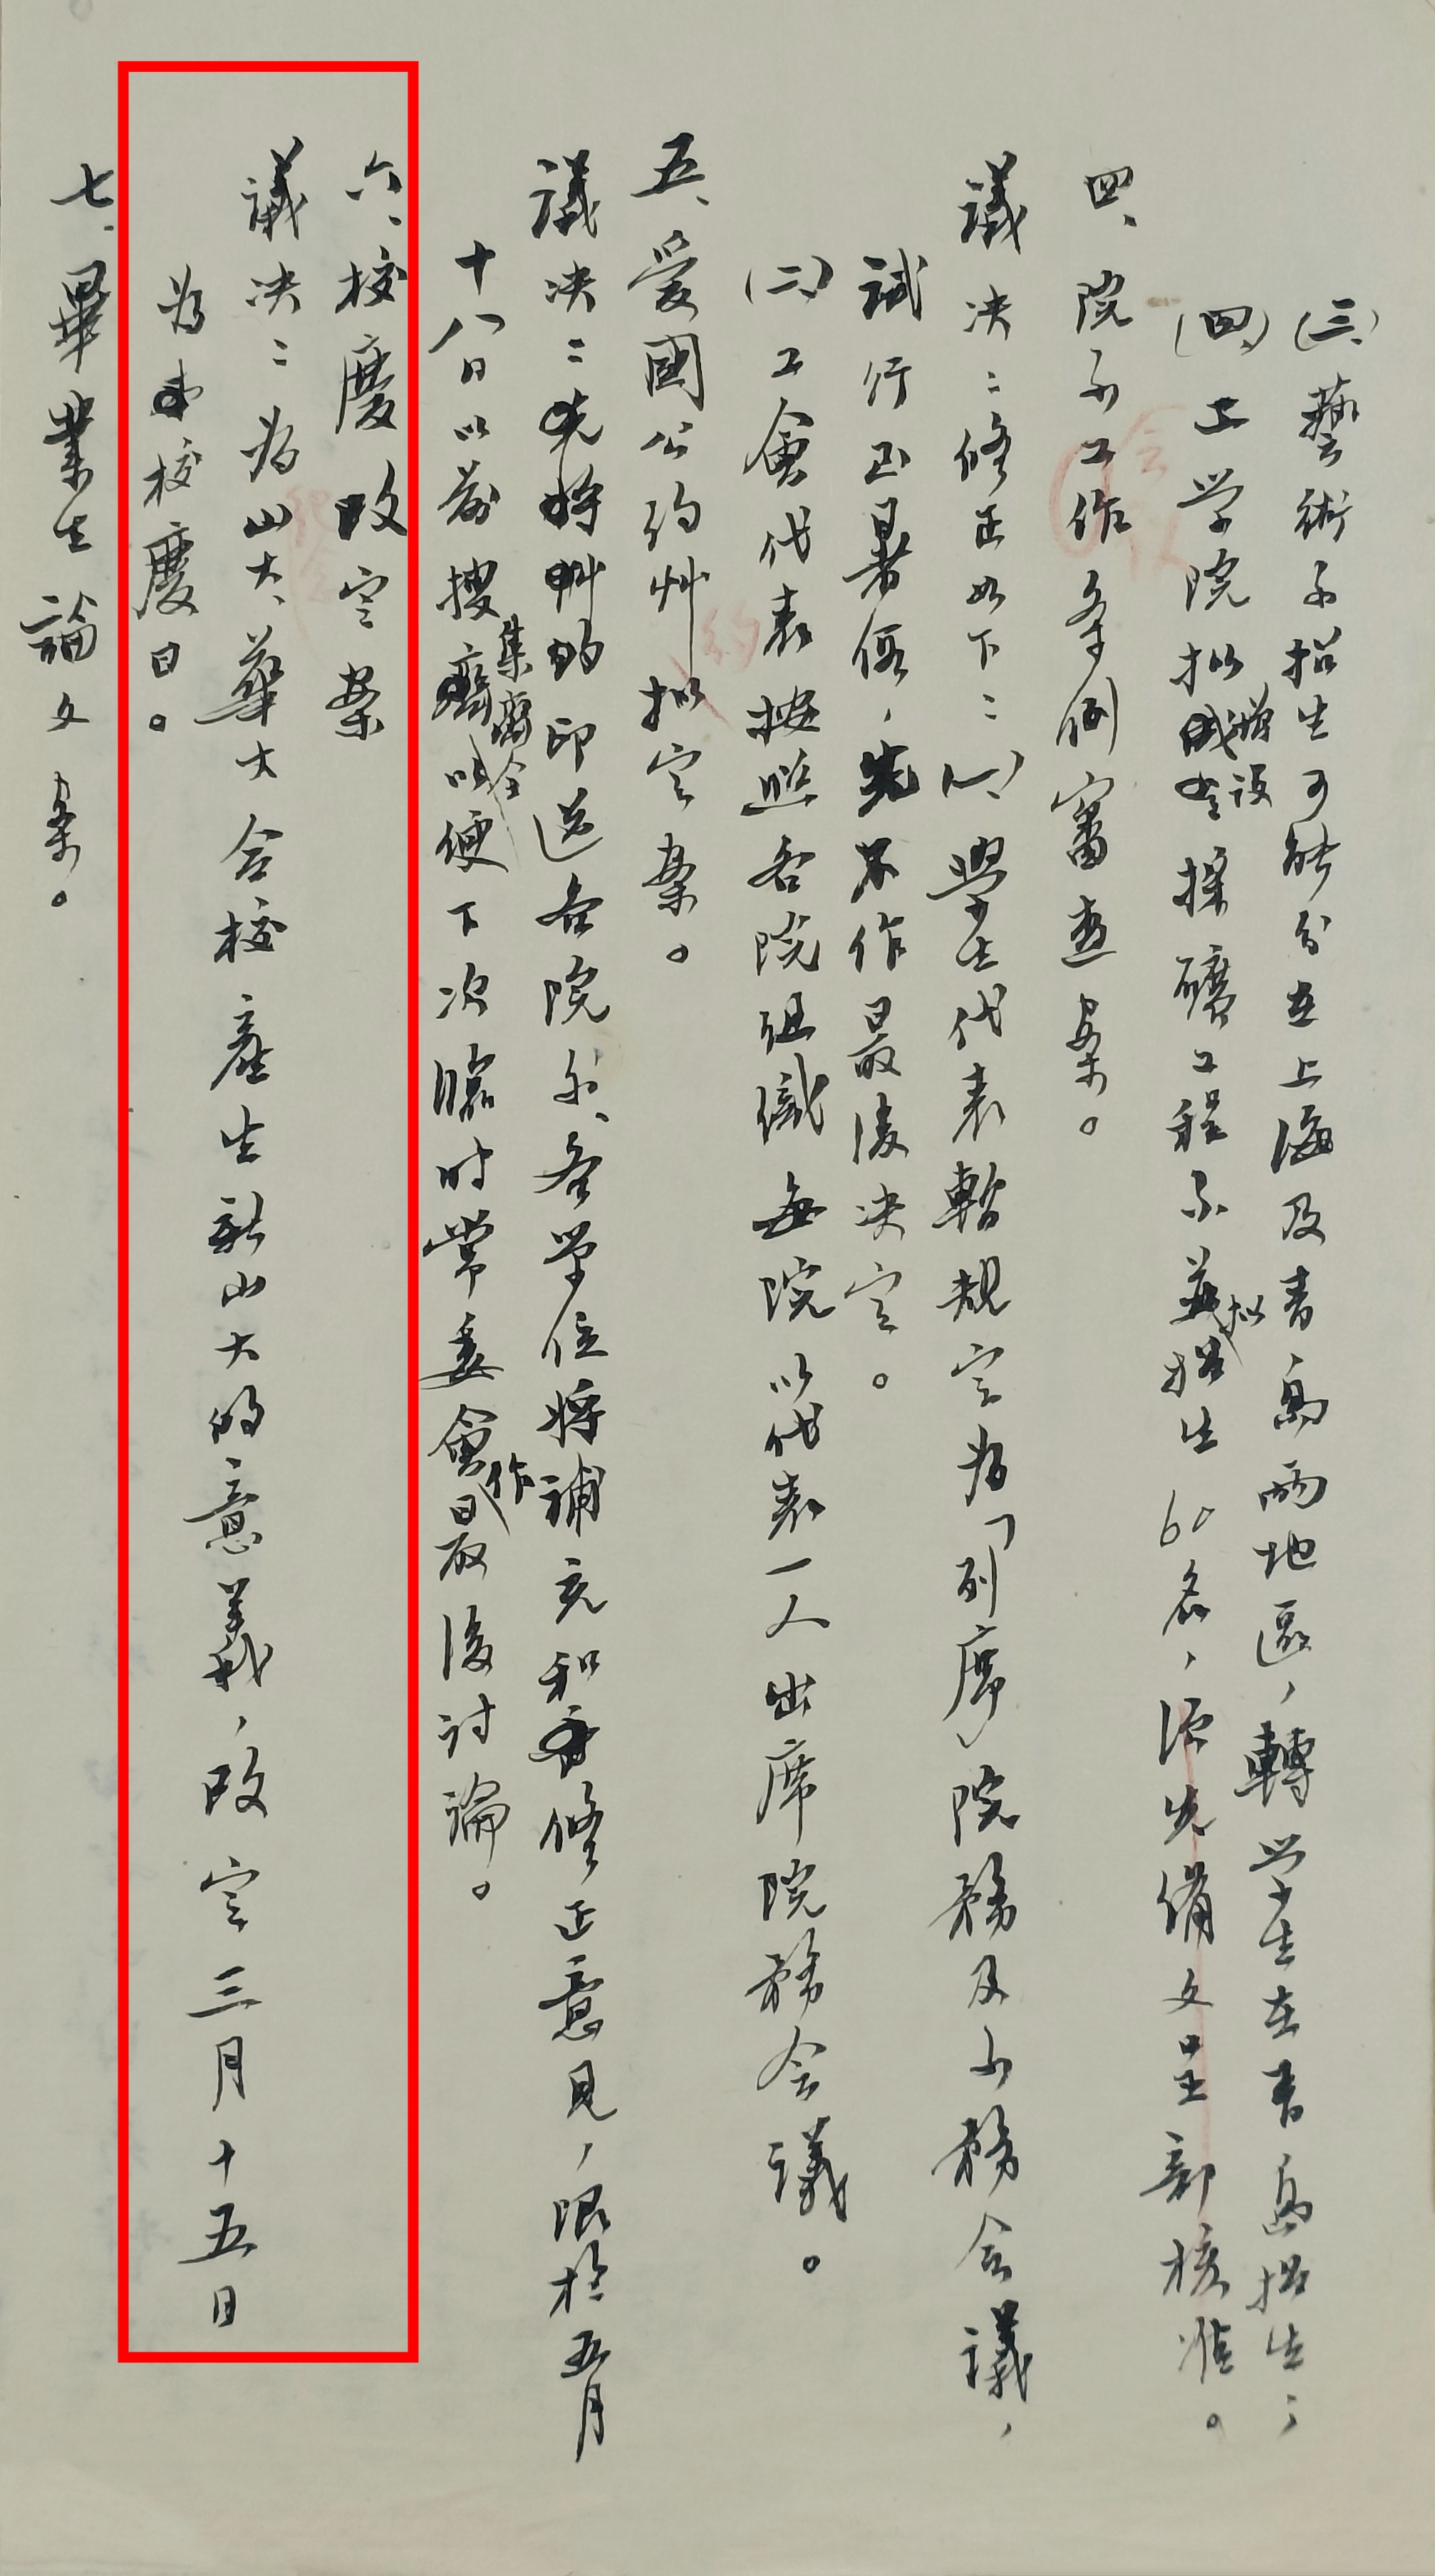 (三)藝術系招生可能分在上海及青島兩地區，轉学生在青島招生；
(四)工学院拟增设採礦工程系，拟招生60名，須先備文呈部核准。
四、院系工作条例審查案。
議决：修正如下：(一)學生代表暫規定為「列席」院務及系務会議，
試行至暑假，先不作最後决定。
(二)工會代表按照各院组織每院以代表一人出席院務会議。
五、爱國公约艸拟定案。
議决：先將艸的印送各院系、各单位將補充和修正意見，限於五月
十八日以前搜集齊全以便下次臨时常委會作最後討論。
六、校慶改定案
議决：為山大、華大合校產生新山大的意義，改定三月十五日
為本校慶日。
七、畢業生論文案。